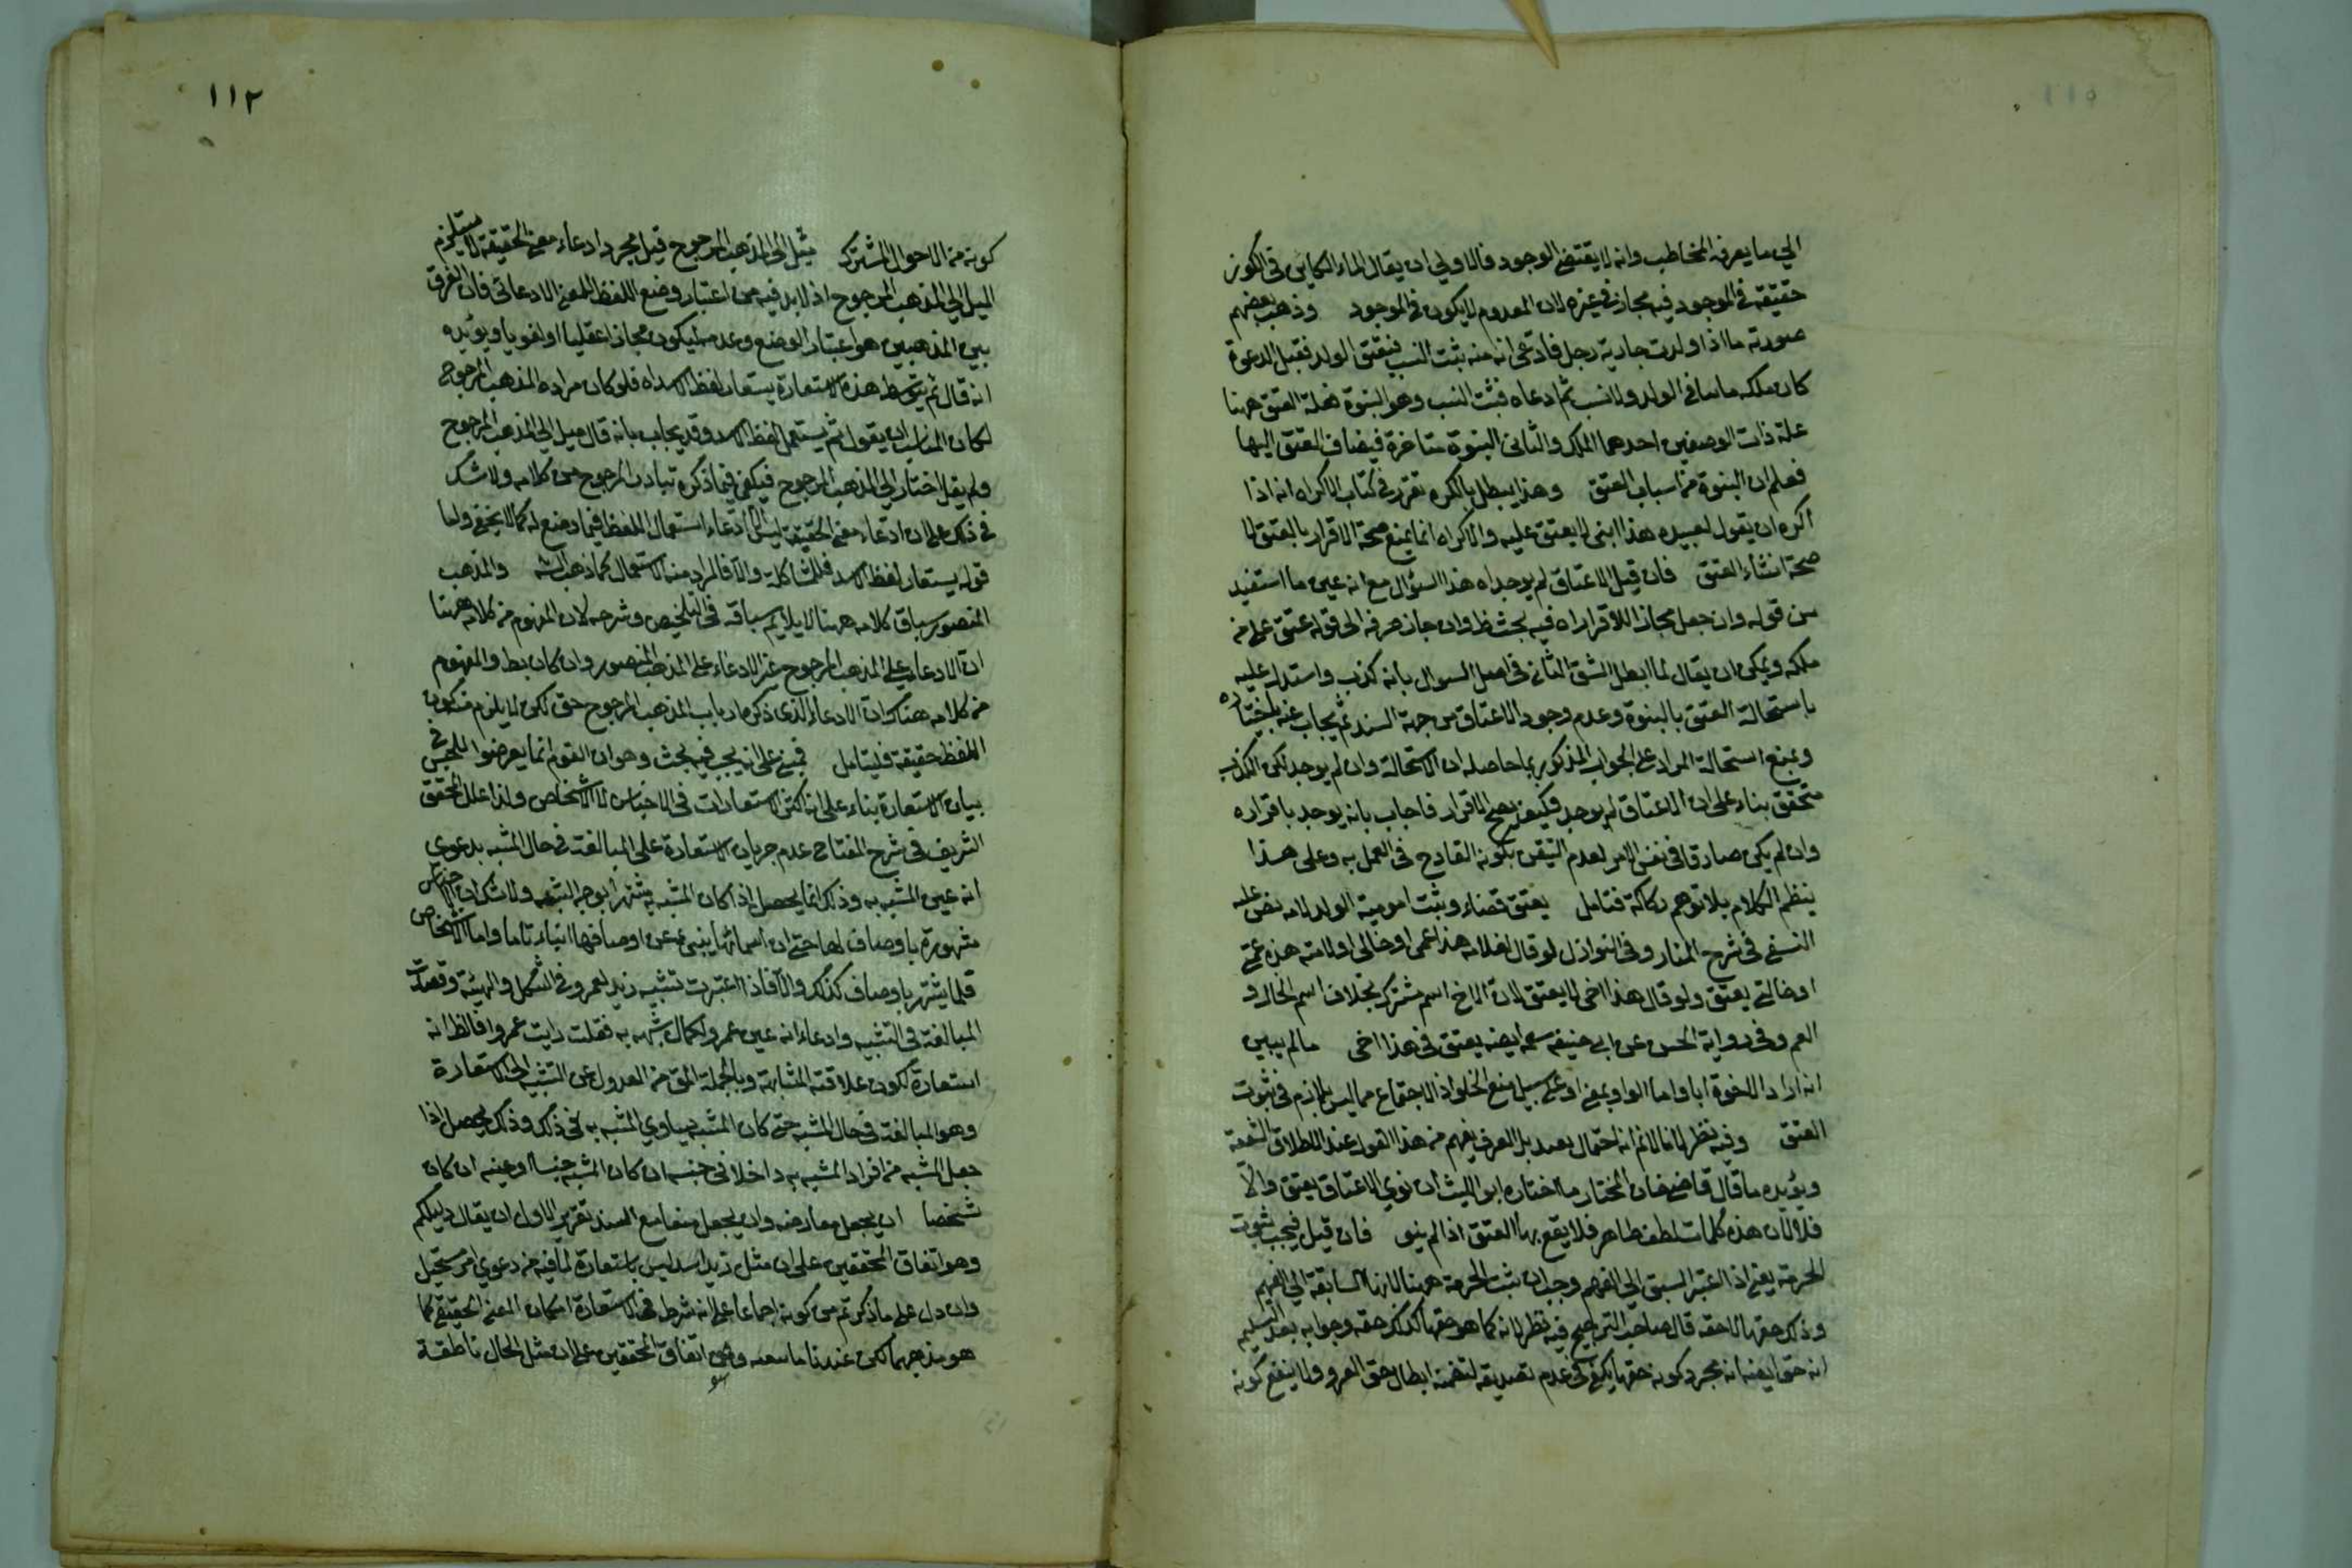 الي ما يعرفه المخاطب وانه لا يقتضي الوجود فالاولي ان يقال الماء الكاين في الكوز
حقيقة في الموجود فيه مجاز في غيره لان المعدوم لا يكون في الموجود وذهب بعضهم
صورته ما اذا ولدت جارية رجل فادعى انه منه يثبت النسب فيعتق الولد فقبل الدعوة
كان ملكه في الولد ولا نسب ثم ادعاه فثبت النسب وهو البنوة فعلة العتق ههنا
علة ذات الوصفين احدهما الملك والثاني البنوة متاخرة فيضاف العتق اليها
فعلم ان البنوة من اسباب العتق وهذا يبطل بالكره تقرر في كتاب الاكراه انه اذا
اكره ان يقول لعبده هذا ابني لا يعتق عليه والاكراه انما يمنع صحة الاقرار بالعتق لا
صحة انشاء العتق فان قيل الاعتاق لم يوجد اه هذا السؤال مع انه عين ما استفيد
من قوله وان جعل مجازا للاقرار اه فيه بحث وان جاز صرفه الى قوله عتق على من
ملكه ويمكن ان يقال لما ابطل الشق الثاني في اصل السوال بانه كذب واستدل عليه
باستحالة العتق بالبنوة وعدم وجود الاعتاق من جهة السند ثم يجاب عنه باختياره
وبمنع استحالة المراد على الجواب المذكور بما حاصله ان الاستحالة وان لم يوجد لكن الكذب
متحقق بناء على ان الاعتاق لم يوجد فكيف يصح الاقرار فاجاب بانه يوجد باقراره
وان لم يكن صادقا في نفس الامر لعدم التيقن بكونه القادح في العمل به وعلى هذا
ينظم الكلام بلا توهم ركاكة فتامل يعتق قضاء ويثبت امومية الولد لامه نص عليه
النسفي في شرح المنار وفي النوازل لو قال لغلامه هذا عمى او خالى او لامته هذه عمتي
او خالتي يعتق ولو قال هذا اخى لا يعتق لان الاخ اسم مشترك بخلاف اسم الخال و
العم وفي رواية الحسن عن ابي حنيفة ايضا يعتق في هذا اخى ما لم يبين
انه اراد الاخوة ابا واما الواو بمعنى او على سبيل منع الخلو اذ الاجتماع مما ليس بلازم في ثبوت
العتق وفيه نظر لانا لا نم انه احتمال بعيد بل العرف يفهم من هذا القول عند الاطلاق الشفقة
ويؤيده ما قال قاضي خان المختار ما اختاره ابو الليث ان نوي الاعتاق يعتق والا
فلا لان هذه كلمات لطف ظاهر فلا يقع بها العتق اذا لم ينو فان قيل فيجب ثبوت
الحرمة يعني اذا اعتبر السبق الي الفهم وجب ان يثبت الحرمة ههنا لانها السابقة الي الفهم
وذلك حقها لا حقه قال صاحب الترجيح فيه نظر لانه كما هو حقها كذلك حقه وجوابه بعد التسليم
انه حق ايضا انه مجرد كونه حقها يكفي في عدم تصديقه لتضمنه ابطال حق الغير ولا ينفع كونه
١١٢
كونه من الاحوال المشترك ميل الى المذهب المرجوح قيل مجرد ادعاء معنى الحقيقة لا يستلزم
الميل الي المذهب المرجوح اذ لا بد فيه من اعتبار وضع اللفظ للمعنى الادعائى فان الفرق
بين المذهبين هو اعتبار الوضع وعدمه ليكون مجازا عقليا او لغويا ويؤيده
انه قال ثم بتوسط هذه الاستعارة يستعار لفظ الاسد اه فلو كان مراده المذهب المرجوح
لكان المناسب ان يقول ثم يستعمل لفظ الاسد وقد يجاب بانه قال ميل الي المذهب المرجوح
ولم يقل اختار الي المذهب المرجوح فيكفي فيما ذكره تبادر المرجوح من كلامه ولا شك
في ذلك على ان ادعاء معنى الحقيقة ليس الا ادعاء استعمال اللفظ فيما وضع له كما لا يخفى واما
قوله يستعار لفظ الاسد فللمشاكلة والا فالمراد منه الاستعمال كما ذهب اليه والمذهب
المنصور سياق كلامه ههنا لا يلايم سياقه في التلخيص وشرحه لان المفهوم من كلامه ههنا
ان الادعاء على المذهب المرجوح غير الادعاء على المذهب المنصور وان كان والمفهوم
من كلامه هناك ان الادعاء الذى ذكره ارباب المذهب المرجوح حق لكن لا يلزم منه كون
اللفظ حقيقة فليتامل فيبني على انه يجب فيه بحث وهو ان القوم انما يعرضوا للجنس في
بيان الاستعارة بناء على ان اكثر الاستعارات في الاجناس لا الاشخاص ولذا علل المحقق
الشريف في شرح المفتاح عدم جريان الاستعارة على المبالغة في حال المشبه بدعوى
انه عين المشبه به وذلك انما يحصل اذا كان المشبه به مشتهرا بوجه الشبه ولا شك ان الاجناس
مشهورة باوصاف لها حتى ان اسمائها ينبئ عن اوصافها انباء تاما واما الاشخاص
قلما يشتهر باوصاف كذلك والا فاذا اعتبرت تشبيه زيد لعمرو في الشكل والهيئة وقصدت
المبالغة في التشبيه وادعاء انه عين عمرو لكمال شبهه به فقلت رايت عمروا فالظ انه
استعارة لكون علاقته المشابهة وبالجملة الحق من العدول عن التشبيه الى الاستعارة
وهو المبالغة في حال المشبه حتى كان المشبه يساوي المشبه به في ذلك وذلك يحصل اذا
جعل المشبه من افراد المشبه به داخلا في جنسه ان كان المشبه جنسا او عينه ان كان
شخصا ان يجعل معارضه وان يجعل منعا مع السند تقرير الاول ان يقال دليلكم
وهو اتفاق المحققين على ان مثل زيد اسد ليس باستعارة لما فيه من دعوي امر مستحيل
وان دل على ما ذكرتم من كونه اجماعا على انه شرط في الاستعارة امكان المعنى الحقيقي كما
هو مذهبهما لكن عندنا ما وهو اتفاق المحققين على ان مثل الحال ناطقة